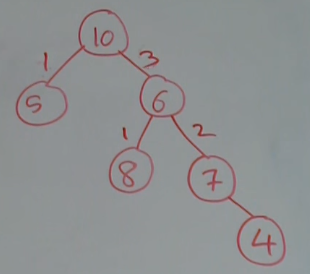 10
1 3
5 6
1 2
8 7
4